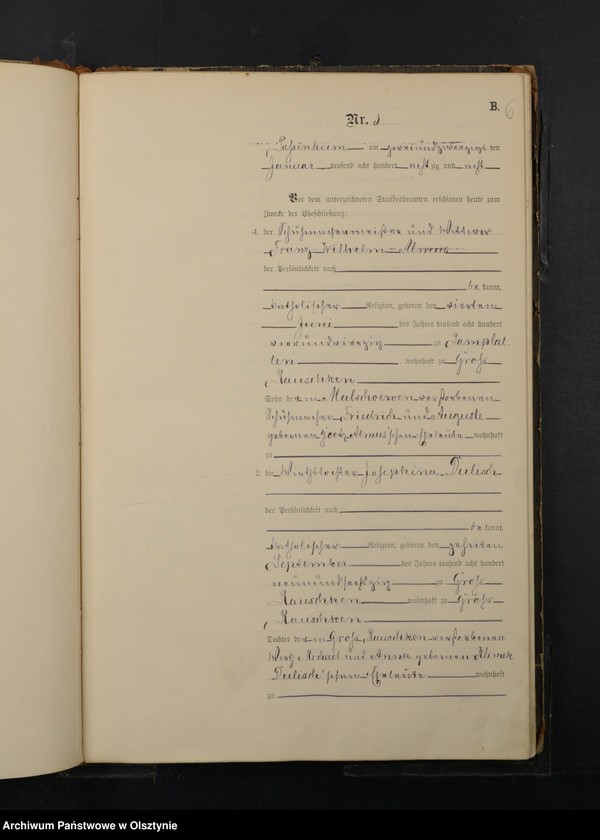 B. 6
Nr.
Passenheim am zweiundzwanzigsten
Januar tausend acht hundert achtzig und acht
Vor dem unterzeichneten Standesbeamten erschienen heute zum
Zwecke der Eheschließung:
1. der Schuhmachermeister und Wittwer
Franz Wilhelm Almus
der Persönlichkeit nach
be kannt,
katholischer Religion, geboren den vierten
Juni des Jahres tausend acht hundert
vierundvierzig zu Samplat
ten, wohnhaft zu Groß
Rauschken
Sohn der in Malschoewen verstorbenen
Schuhmacher Friedrich und Auguste
geborenen Almus'schen Eheleute wohnhaft
zu
2. die Wirthstochter Josephina
der Persönlichkeit nach
be kannt,
katholischer Religion, geboren den zehnten
September des Jahres tausend acht hundert
neunundsechszig zu Groß
Rauschken wohnhaft zu Groß
Rauschken
Tochter der in Groß Rauschken verstorbenen
Wirth Michael und Anna geborenen
'schen Eheleute wohnhaft
zu
Archiwum Państwowe w Olsztynie